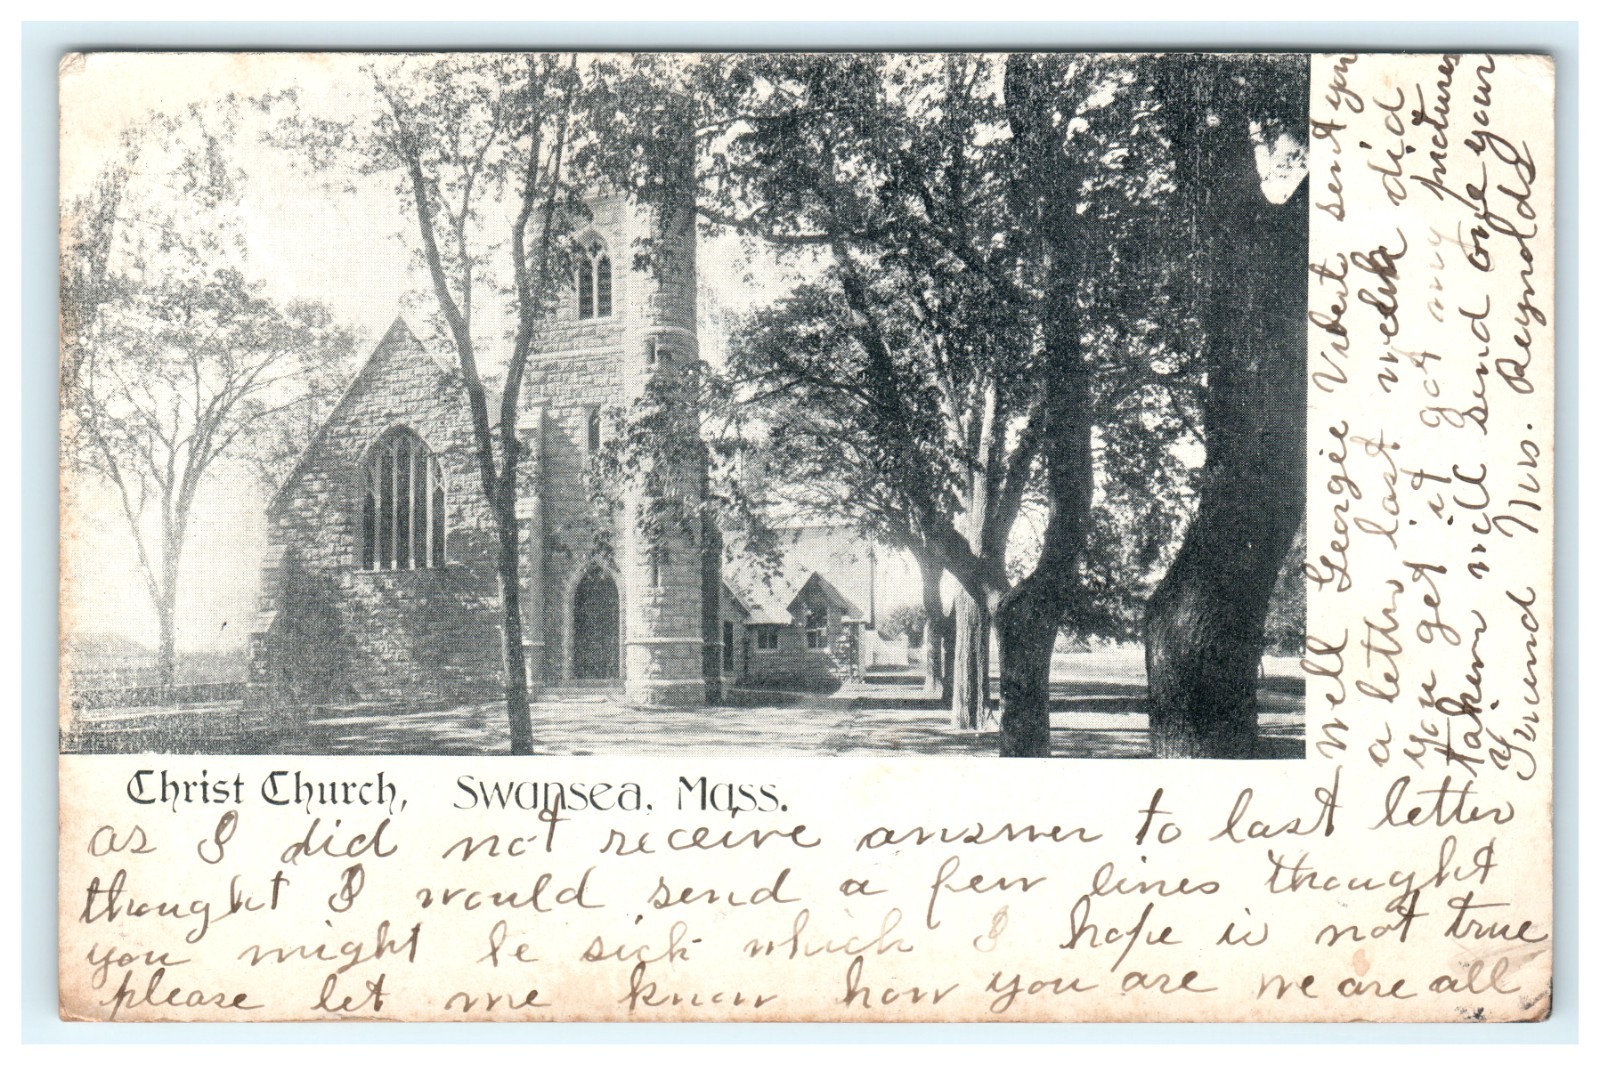 Christ Church, Swansea, Mass.
as I did not receive answer to last letter
thought I would send a few lines thought
you might be sick which I hope is not true
please let me know how you are we are all
well Georgie sent you
a letter last week did
you get it got my pictures
taken will send one your
Friend Mrs. Reynolds